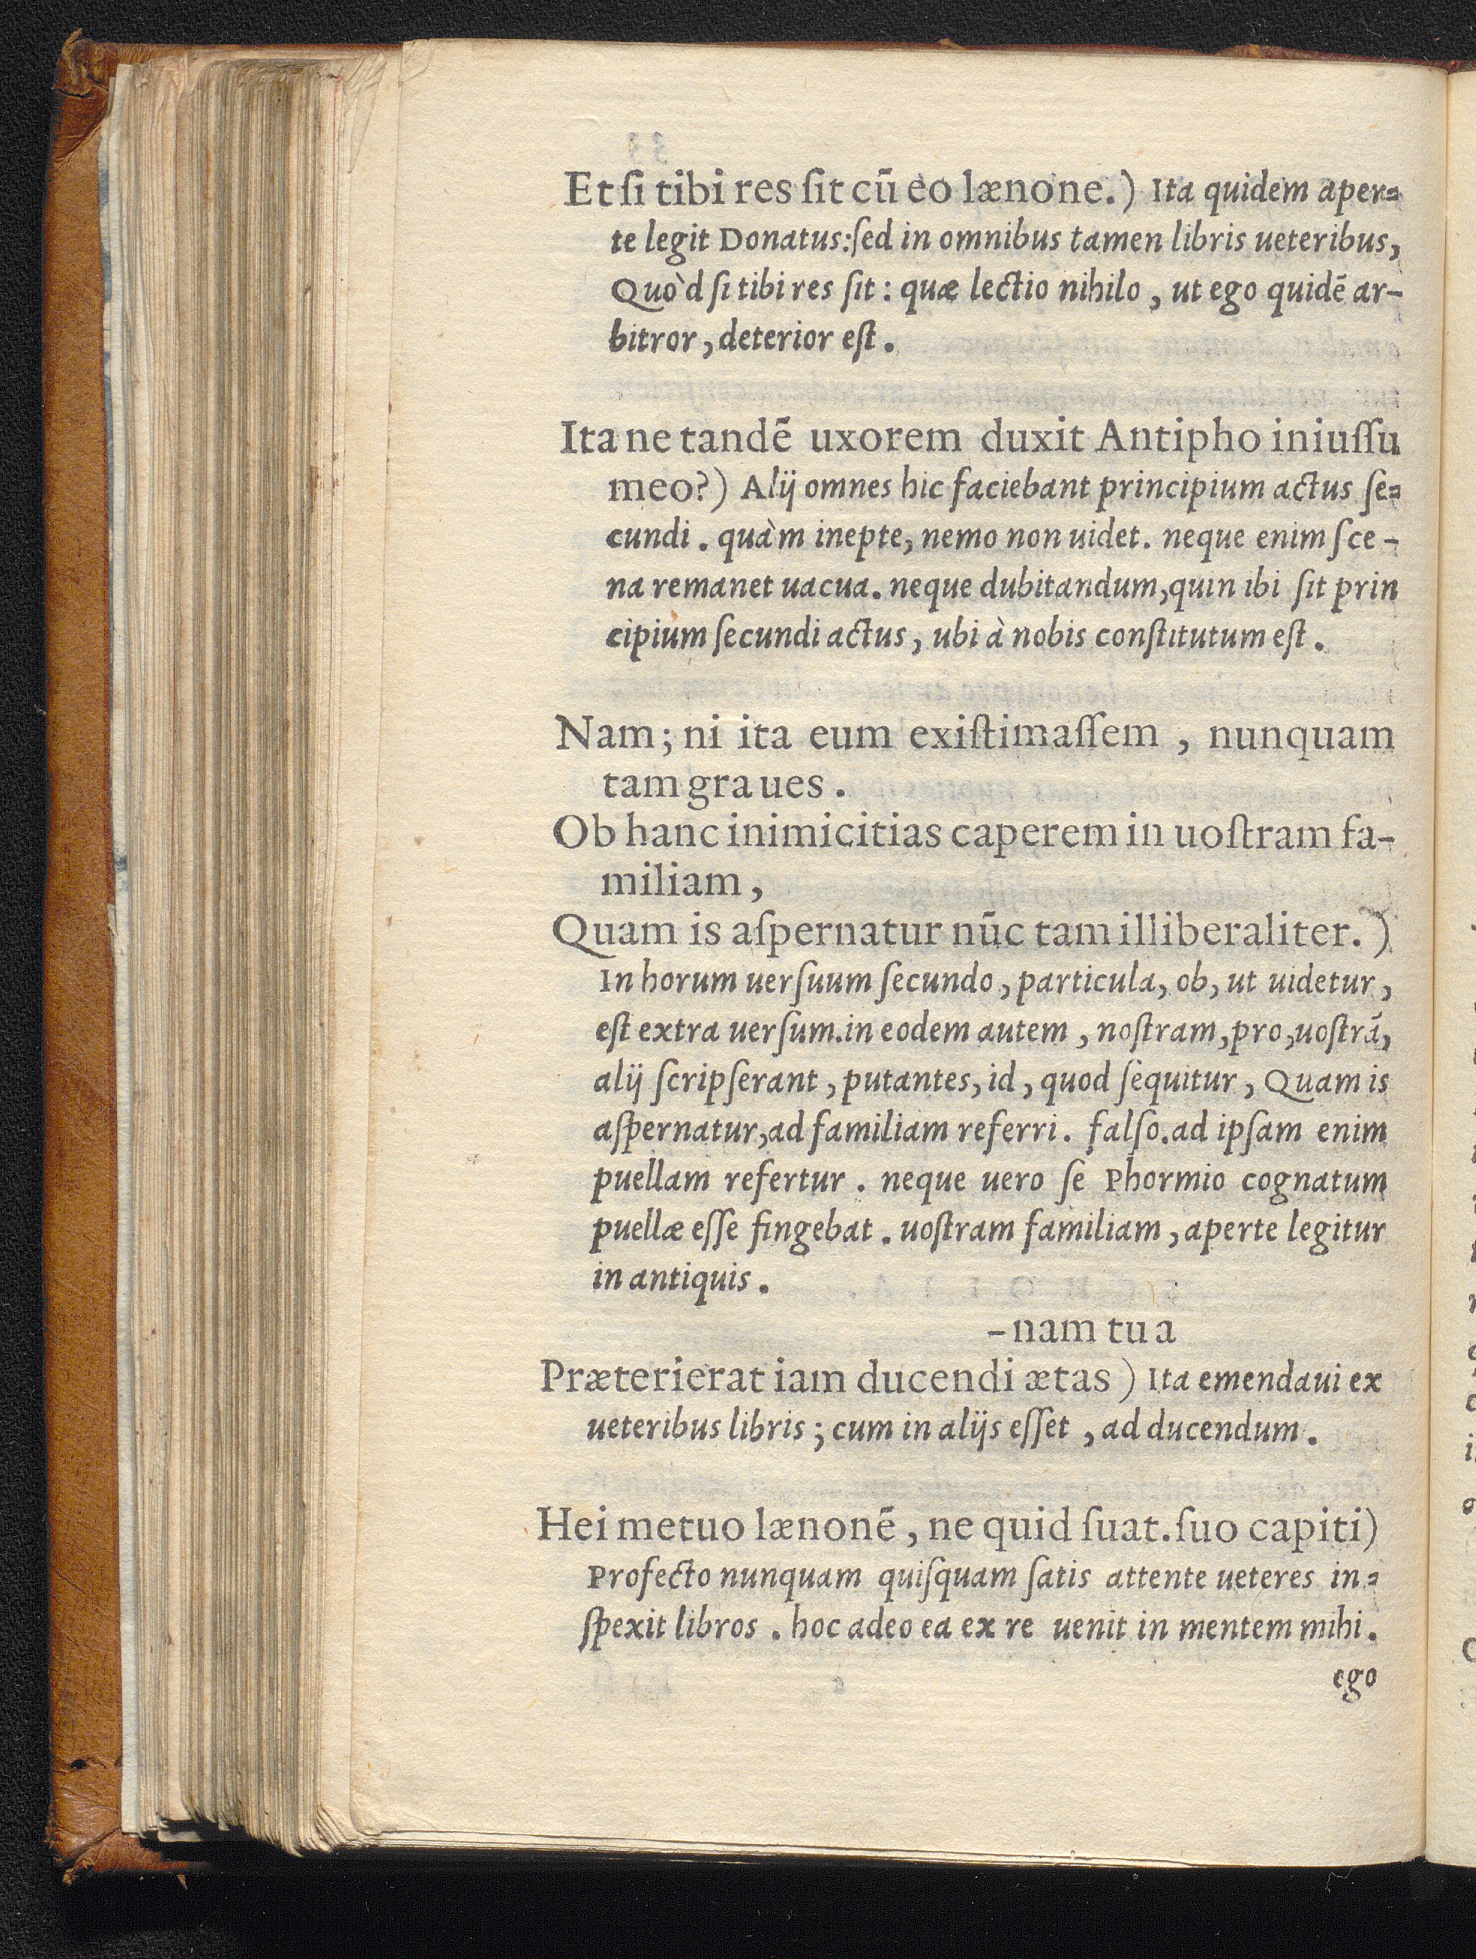 Et ſi tibi res ſit cū eo lænone.) Ita quidem aper=
te legit Donatus: ſed in omnibus tamen libris ueteribus,
Quòd ſi tibi res ſit: quæ lectio nihilo, ut ego quidē ar-
bitror, deterior eſt.
Itane tandē uxorem duxit Antipho iniuſſu
meo?) Alij omnes hic faciebant principium actus ſe=
cundi. quàm inepte, nemo non uidet. neque enim ſce-
na remanet uacua. neque dubitandum, quin ibi ſit prin
cipium ſecundi actus, ubi à nobis conſtitutum eſt.
Nam; ni ita eum exiſtimaſſem, nunquam
tam graues.
Ob hanc inimicitias caperem in uoſtram fa-
miliam,
Quam is aſpernatur nūc tam illiberaliter.)
In horum uerſuum ſecundo, particula, ob, ut uidetur,
eſt extra uerſum. in eodem autem, noſtram, pro, uoſtrā,
alij ſcripſerant, putantes, id, quod ſequitur, Quam is
aſpernatur, ad familiam referri. falſo. ad ipſam enim
puellam refertur. neque uero ſe Phormio cognatum
puellæ eſſe fingebat. uoſtram familiam, aperte legitur
in antiquis.
-nam tua
Præterierat iam ducendi ætas) Ita emendaui ex
ueteribus libris; cum in alijs eſſet, ad ducendum.
Hei metuo lænonē, ne quid ſuat. ſuo capiti)
Profecto nunquam quiſquam ſatis attente ueteres in=
ſpexit libros. hoc adeo ea ex re uenit in mentem mihi.
ego